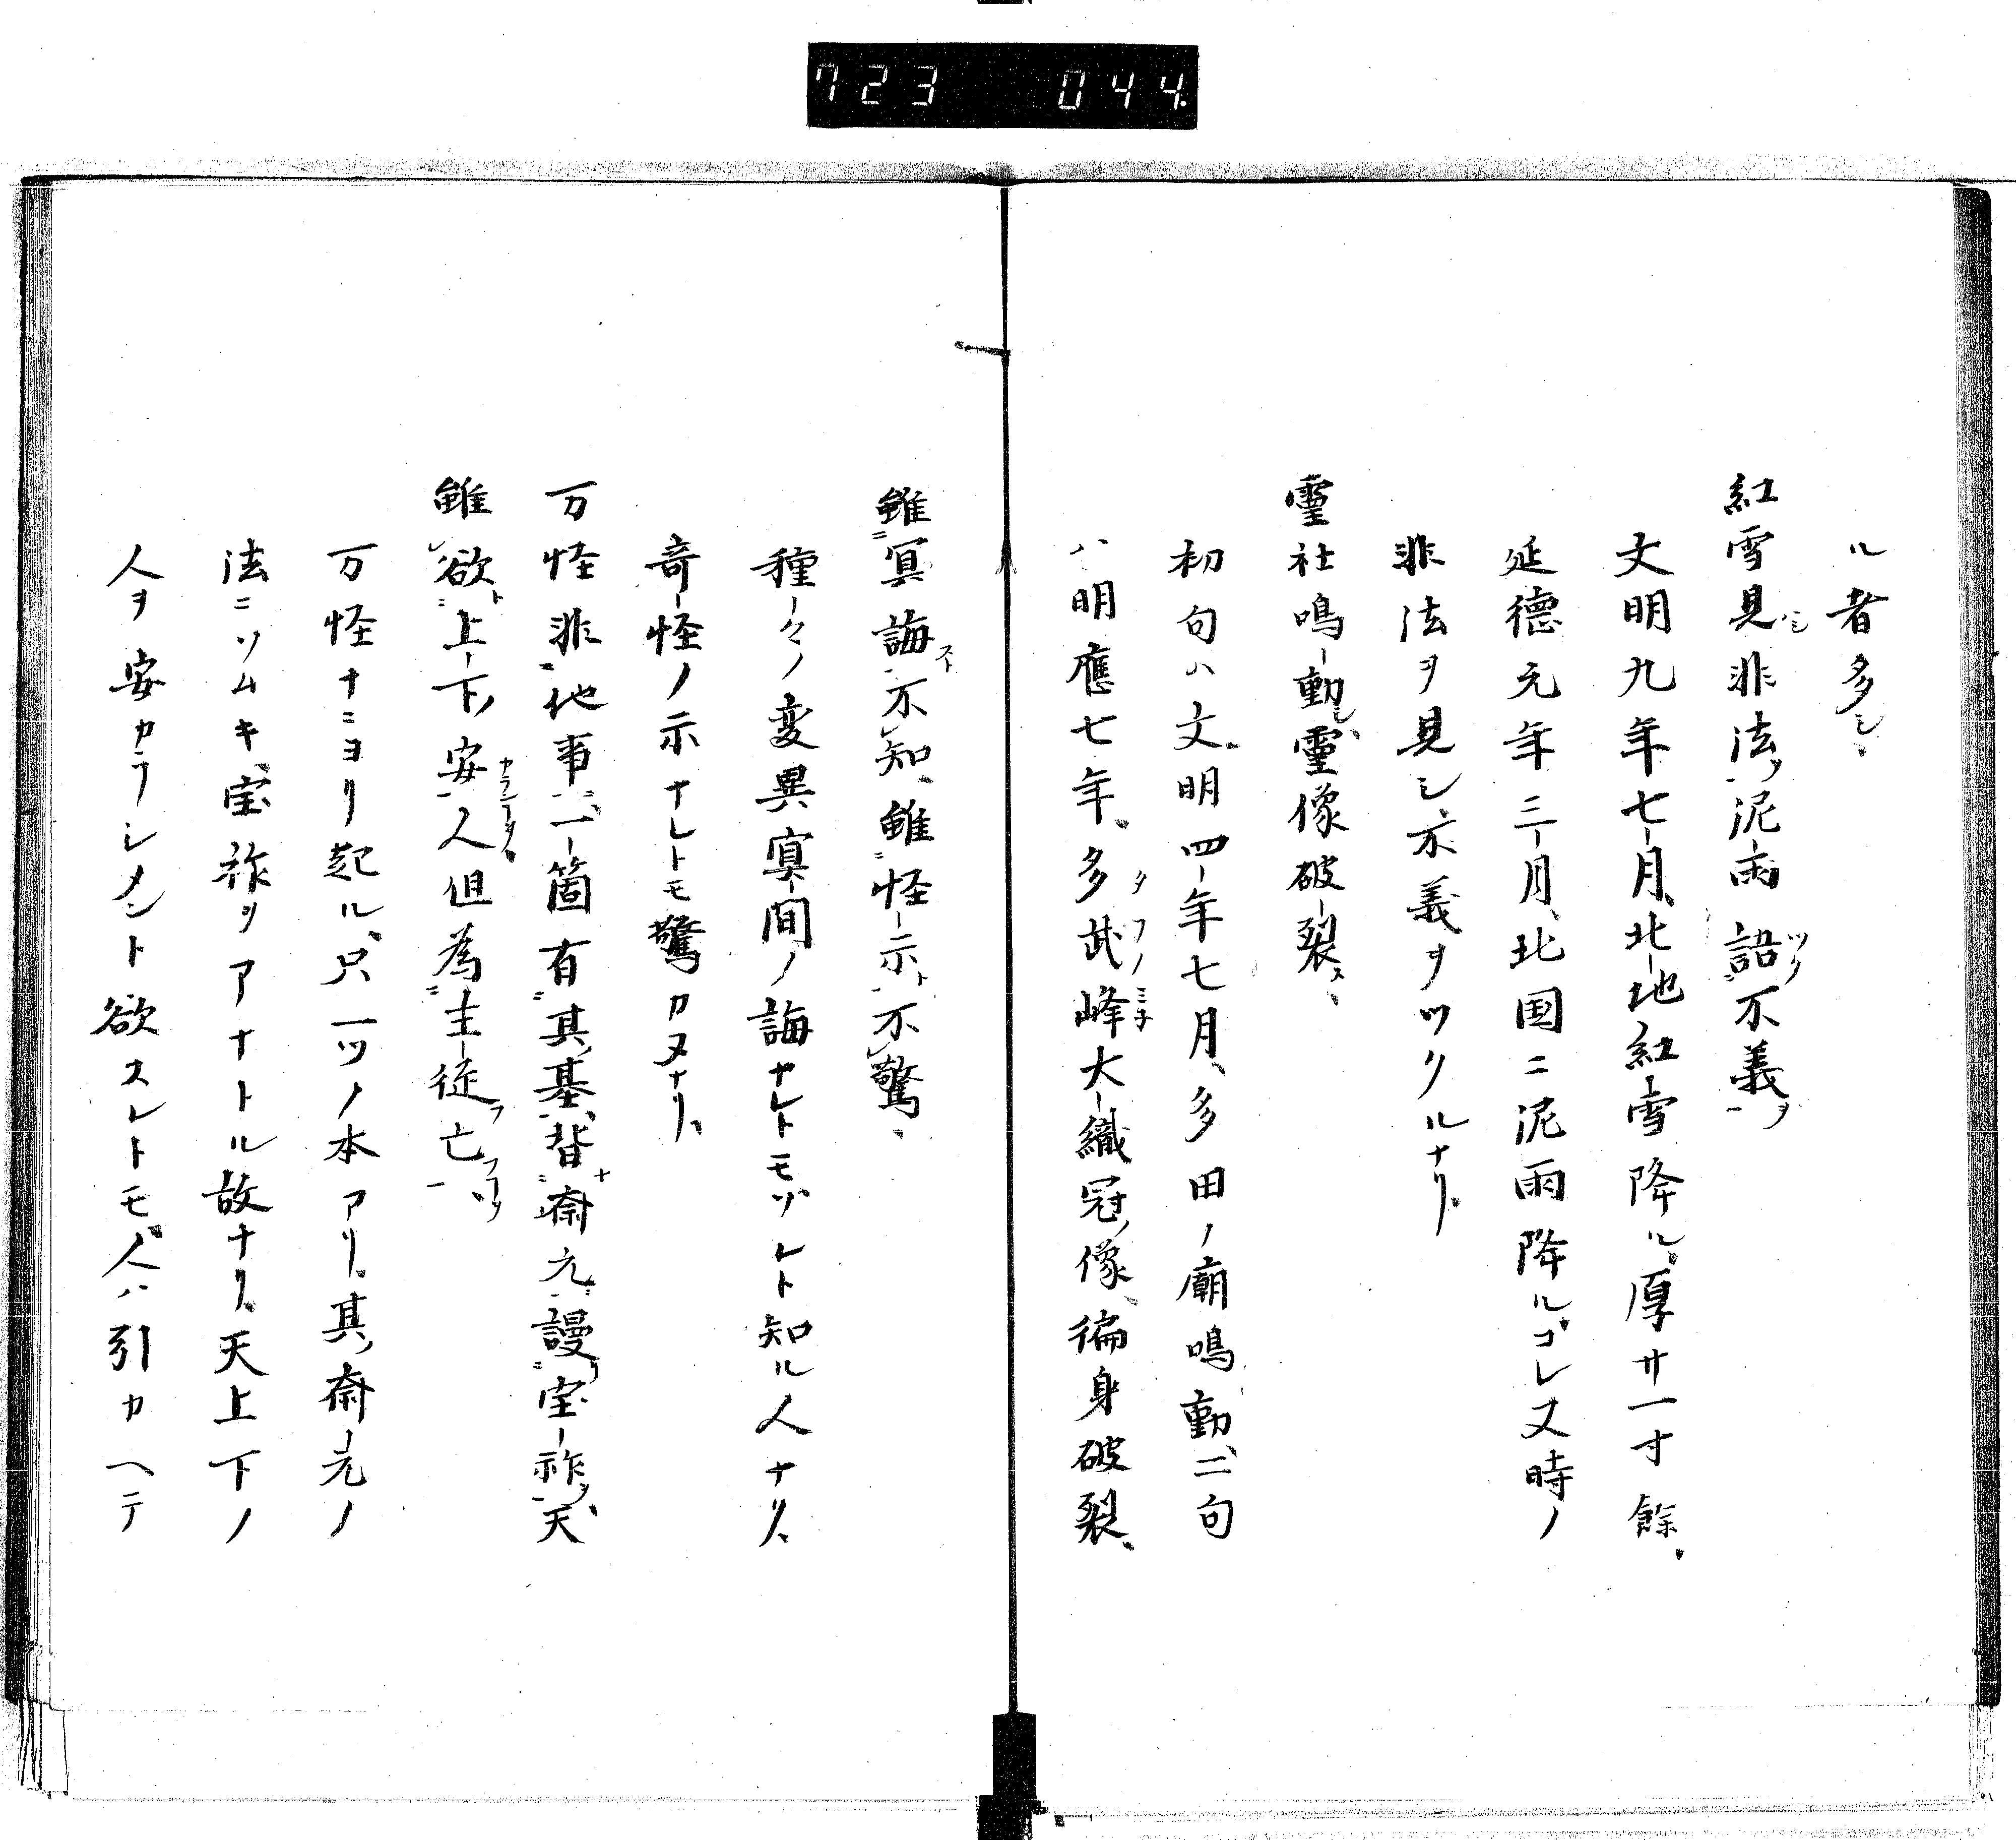 723 044
ル者多シ、
紅雪見非法泥雨詔不義
文明九年七月、北地紅雪降ル、厚サ一寸餘、
延德元年三月、北国ニ泥雨降ル、コレ又時ノ
非法ヲ見シ、不義ヲツクルナリ、
靈社鳴動靈像破裂、
初句ハ文明四年七月、多田ノ廟鳴動、二句
ハ明應七年、多武峰大織冠ノ像、徧身破裂、
雖冥誨不知、雖怪示不驚、
種々ノ変異冥間ノ誨ナレトモソレト知ル人ナリ、
奇怪ノ示ナレトモ驚カヌナリ、
万怪非他事、一箇有其基、背斎元謾宝祚、天
雖欲上下安人但為主従亡
万怪ナニヨリ起ル、只一ツノ本アリ、其斎元ノ
法ニソムキ、宝祚ヲアナトル故ナリ、天上下ノ
人ヲ安カラシメント欲スレトモ、人ハ引カヘテ